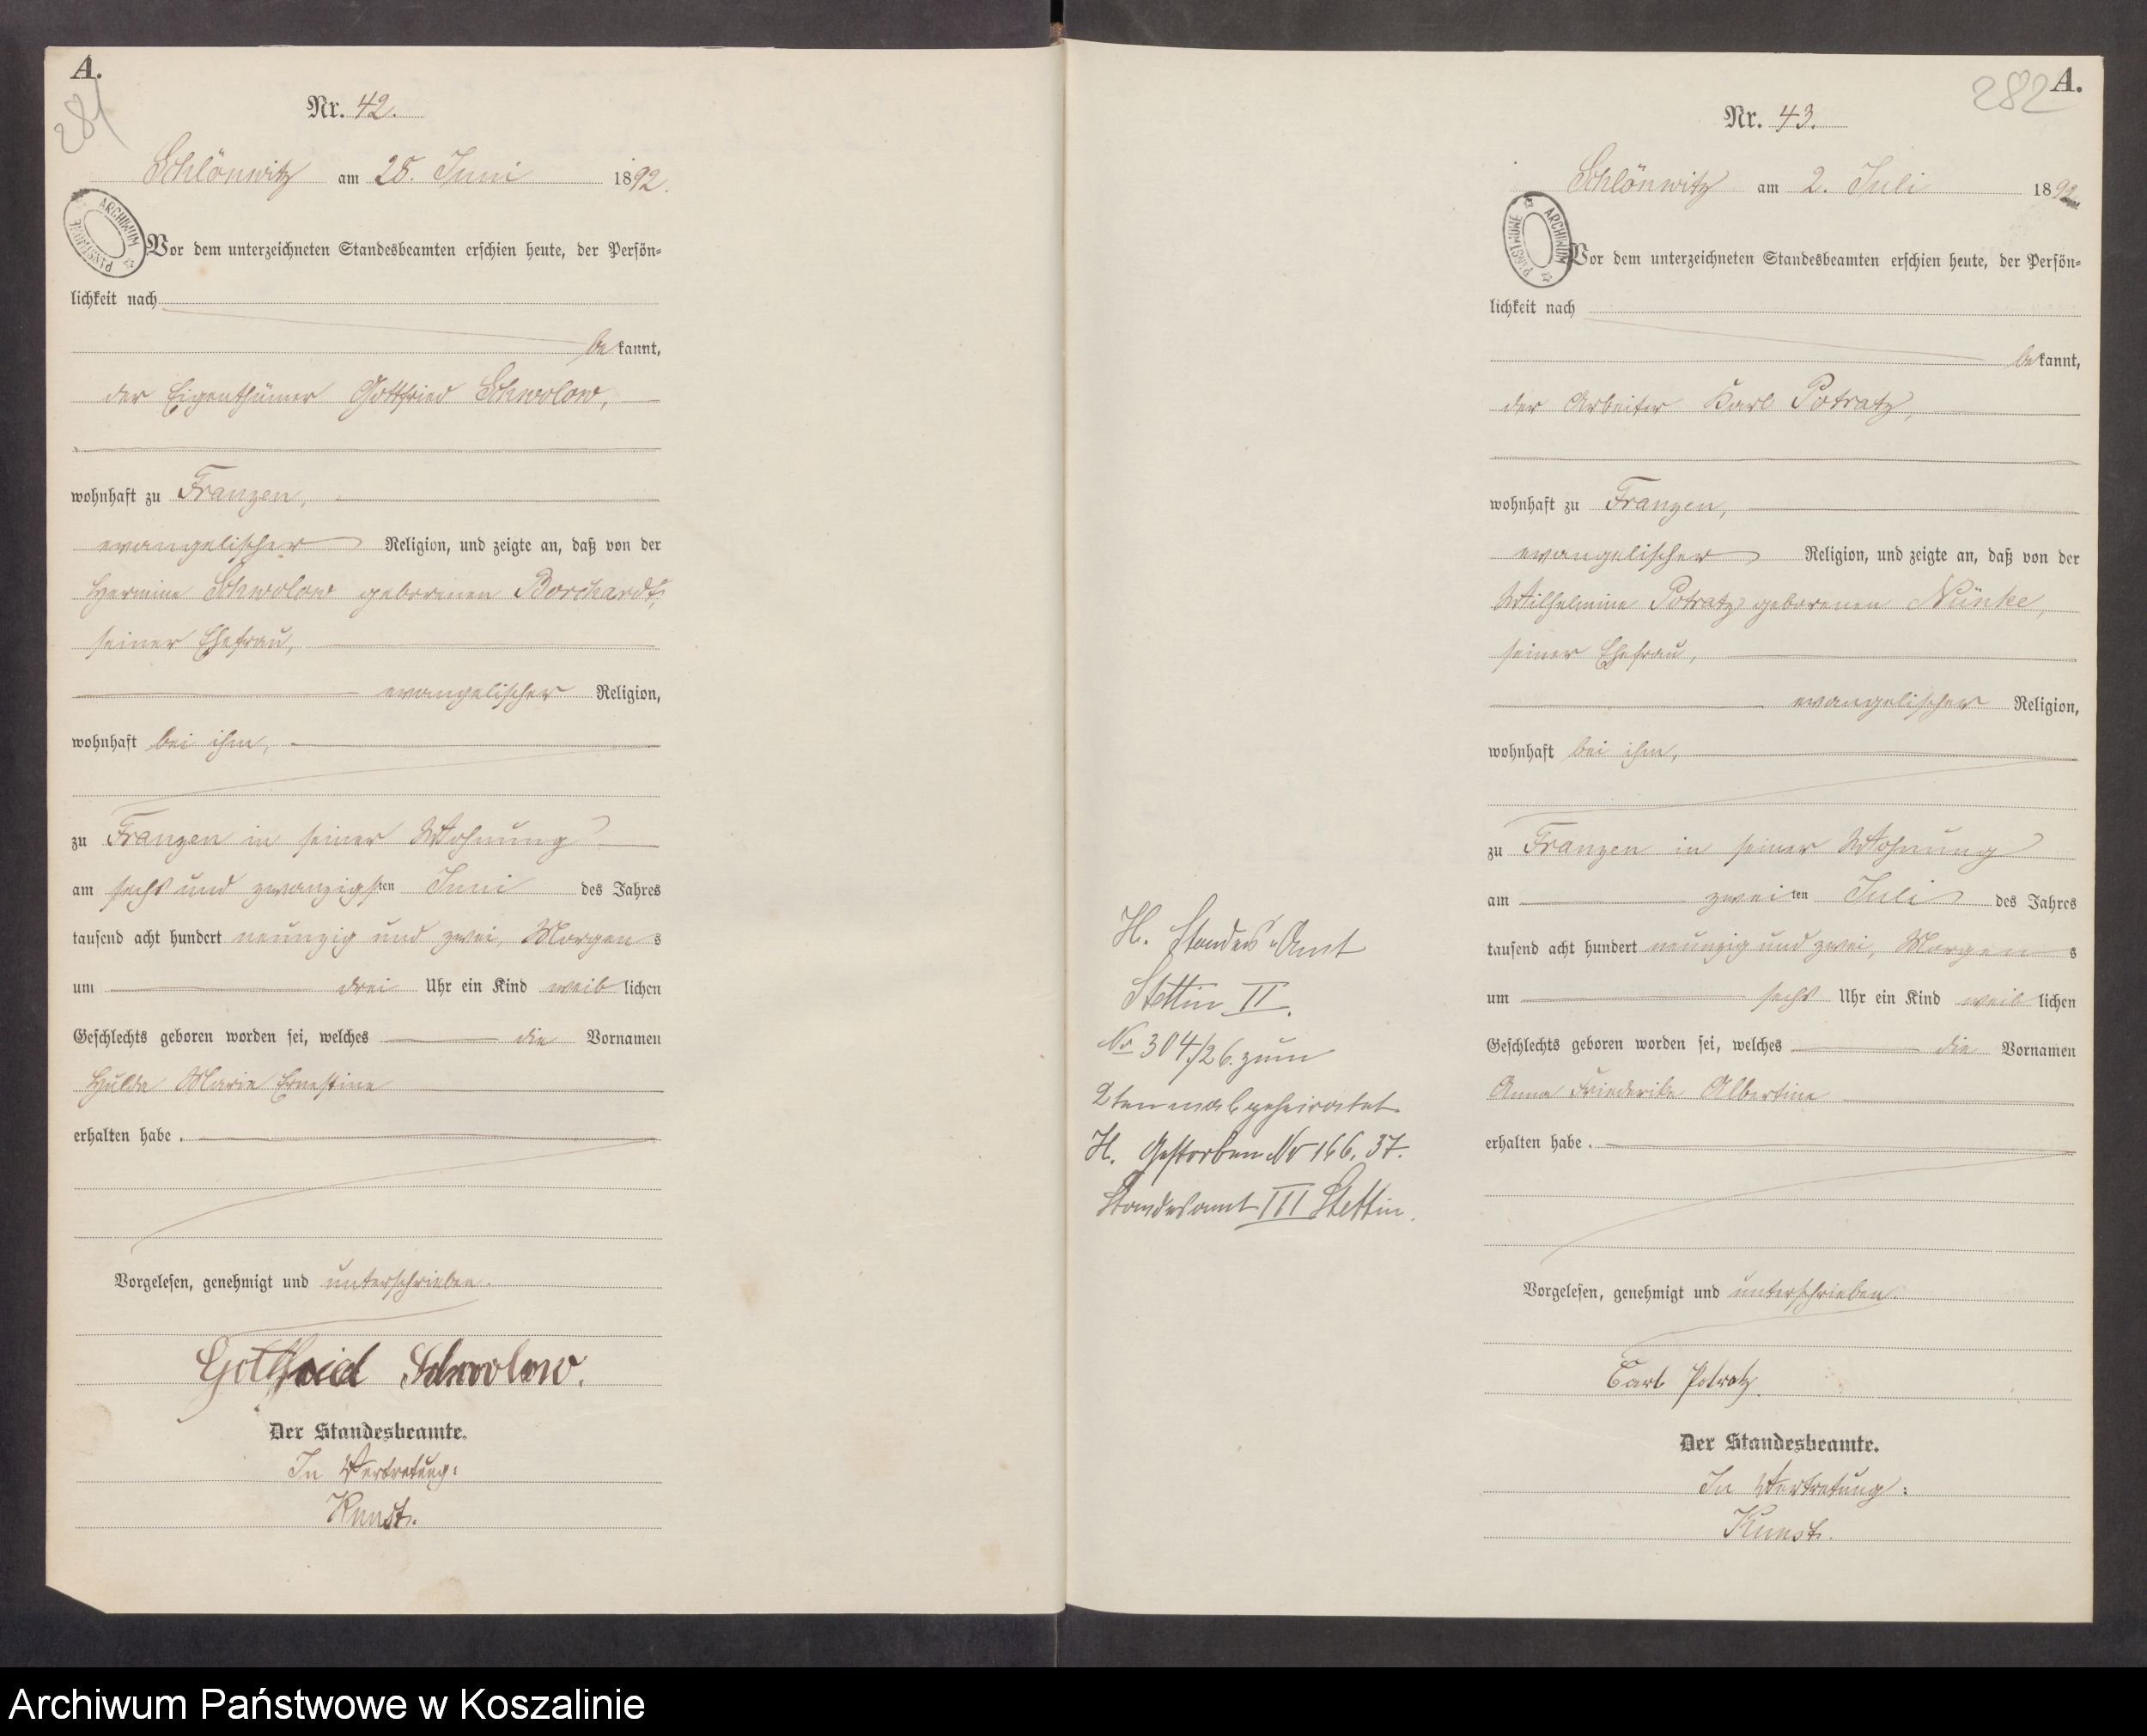 A.
281
Nr. 42.
Schlönwitz am 28. Juni 1892.
ARCHIWUM PAŃSTWOWE
Vor dem unterzeichneten Standesbeamten erschien heute, der Persön-
lichkeit nach
bekannt,
der Eigenthümer Gottfried Schwolow,
wohnhaft zu Franzen,
evangelischer Religion, und zeigte an, daß von der
Hermine Schwolow geborenen Borchardt,
seiner Ehefrau,
evangelischer Religion,
wohnhaft bei ihm,
zu Franzen in seiner Wohnung
am sechs und zwanzigsten Juni des Jahres
tausend acht hundert neunzig und zwei, Morgens
um drei Uhr ein Kind weiblichen
Geschlechts geboren worden sei, welches die Vornamen
Hulda Marie Ernestine
erhalten habe.
Vorgelesen, genehmigt und unterschrieben.
Gottfried Schwolow.
Der Standesbeamte.
In Vertretung:
Kunst.
H. Standes-Amt
Stettin II.
No 304/26. zum
2ten mal geheiratet
H. Gestorben No 166. 37.
Standesamt III Stettin.
282
A.
Nr. 43.
Schlönwitz am 2. Juli 1892
ARCHIWUM PAŃSTWOWE
Vor dem unterzeichneten Standesbeamten erschien heute, der Persön-
lichkeit nach
bekannt,
der Arbeiter Karl Potratz,
wohnhaft zu Franzen,
evangelischer Religion, und zeigte an, daß von der
Wilhelmine Potratz geborenen Nünke,
seiner Ehefrau,
evangelischer Religion,
wohnhaft bei ihm,
zu Franzen in seiner Wohnung
am zweiten Juli des Jahres
tausend acht hundert neunzig und zwei, Morgens
um sechs Uhr ein Kind weiblichen
Geschlechts geboren worden sei, welches die Vornamen
Anna Friederike Albertine
erhalten habe.
Vorgelesen, genehmigt und unterschrieben.
Carl Potratz.
Der Standesbeamte.
In Vertretung:
Kunst.
Archiwum Państwowe w Koszalinie